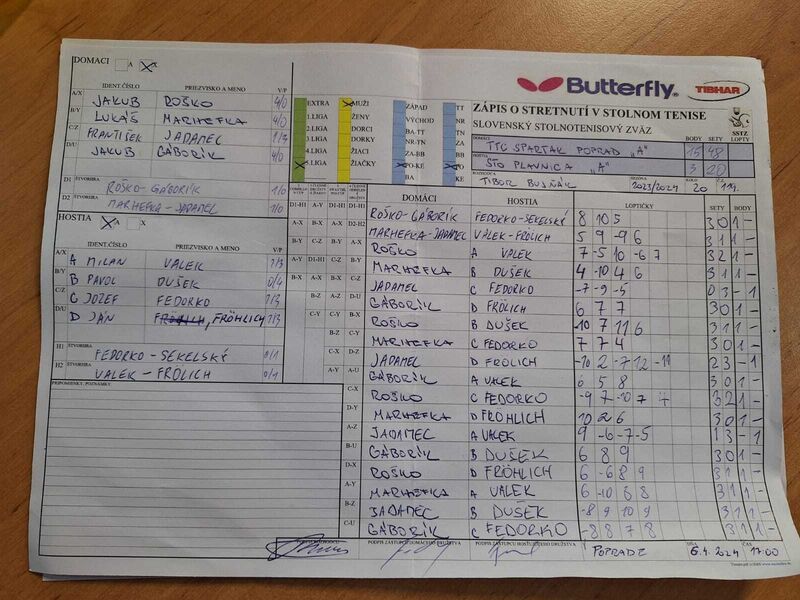 DOMACI A X
IDENT.ČÍSLO PRIEZVISKO A MENO V/P
A/X JAKUB ROŠKO 4/0
B/Y LUKÁŠ MARHEFKA 4/0
C/Z FRANTIŠEK JADAMEC 1/3
D/U JAKUB GÁBORÍK 4/0
D1 ŠTVORHRA ROŠKO - GÁBORÍK 1/0
D2 MARHEFKA - JADAMEC 1/0
HOSTIA A X
IDENT.ČÍSLO PRIEZVISKO A MENO V/P
A/X A MILAN VALEK 1/3
B/Y B PAVOL DUŠEK 0/4
C/Z C JOZEF FEDORKO 1/3
D/U D JÁN FRÖHLICH 1/3
H1 ŠTVORHRA FEDORKO - SEKELSKÝ 0/1
H2 ŠTVORHRA VALEK - FRÖLICH 0/1
PRIPOMIENKY, POZNÁMKY
EXTRA
1.LIGA
2.LIGA
3.LIGA
4.LIGA
5.LIGA
MUŽI
ŽENY
DORCI
DORKY
ŽIACI
ŽIAČKY
ZÁPAD TT
VÝCHOD NR
BA-TT TN
NR-TN ZA
ZA-BB BB
PO-KE PO
BA KE
Butterfly
TIBHAR
ZÁPIS O STRETNUTÍ V STOLNOM TENISE
SLOVENSKÝ STOLNOTENISOVÝ ZVÄZ
SSTZ
BODY SETY LOPTY
DOMÁCI TTC SPARTAK POPRAD „A" 15 48
HOSTIA STO PLAVNICA „A" 3 20
ROZHODCA TIBOR BUJŇÁK SEZÓNA 2023/2024 KOLO 20
DOMÁCI HOSTIA LOPTIČKY SETY BODY
D1-H1 A-Y D1-H1 D1-H1 ROŠKO - GÁBORÍK FEDORKO - SEKELSKÝ 8 10 5 3 0 1 -
MARHEFKA - JADAMEC VALEK - FRÖLICH 5 9 -9 6 3 1 1 -
ROŠKO A VALEK 7 -5 10 -6 7 3 2 1 -
MARHEFKA B DUŠEK 4 -10 4 6 3 1 1 -
JADAMEC C FEDORKO -7 -9 -5 0 3 - 1
GÁBORÍK D FRÖLICH 6 7 7 3 0 1 -
ROŠKO B DUŠEK -10 7 11 6 3 1 1 -
MARHEFKA C FEDORKO 7 7 4 3 0 1 -
JADAMEC D FRÖLICH -10 2 -7 12 -11 2 3 - 1
GÁBORÍK A VALEK 6 5 8 3 0 1 -
ROŠKO C FEDORKO -9 7 -10 7 7 3 2 1 -
MARHEFKA D FRÖHLICH 10 2 6 3 0 1 -
JADAMEC A VALEK 9 -6 -7 -5 1 3 - 1
GÁBORÍK B DUŠEK 6 8 9 3 0 1 -
ROŠKO D FRÖHLICH 6 -6 8 9 3 1 1 -
MARHEFKA A VALEK 6 -10 6 8 3 1 1 -
JADAMEC B DUŠEK -8 9 10 9 3 1 1 -
GÁBORÍK C FEDORKO -8 8 7 8 3 1 1 -
PODPIS ZÁSTUPCU DOMÁCEHO DRUŽSTVA PODPIS ZÁSTUPCU HOSŤUJÚCEHO DRUŽSTVA POPRADE DŇA 6.4.2024 ČAS 17:00